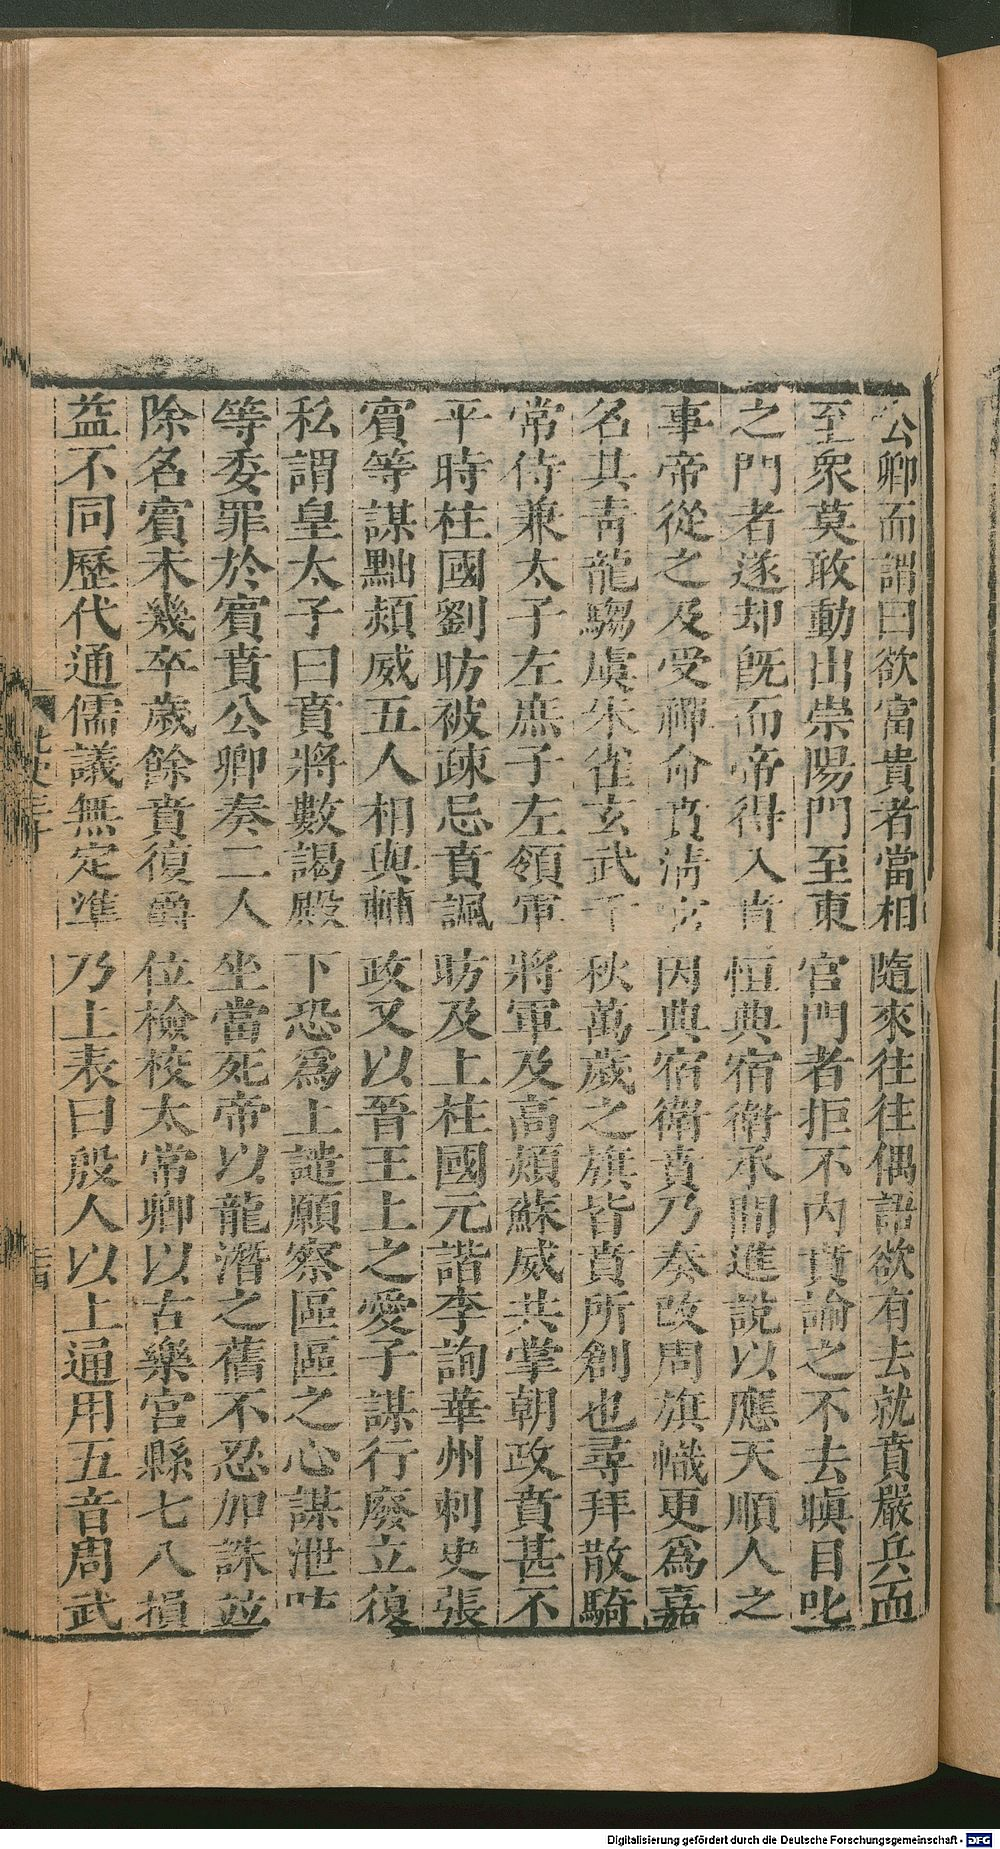 公卿而謂曰欲富貴者當相隨來往往偶語欲有去就賁嚴兵而
至衆莫敢動出崇陽門至東宮門者拒不內賁諭之不去瞋目叱
之門者遂却旣而帝得入賁恒典宿衛承間進說以應天順人之
事帝從之及受禪命賁淸宮因典宿衛賁乃奏改周旗幟更爲嘉
名其靑龍騶虞朱雀玄武千秋萬歲之旗皆賁所創也尋拜散騎
常侍兼太子左庶子左領軍將軍及高熲蘇威共掌朝政賁甚不
平時柱國劉昉被疎忌賁諷昉及上柱國元諧李詢華州刺史張
賓等謀黜熲威五人相與輔政又以晉王上之愛子謀行廢立復
私謂皇太子曰賁將數謁殿下恐爲上譴願察區區之心謀泄昉
等委罪於賓賁公卿奏二人坐當死帝以龍潛之舊不忍加誅並
除名賓未幾卒歲餘賁復爵位檢校太常卿以古樂宮縣七八損
益不同歷代通儒議無定準乃上表曰殷人以上通用五音周武
Digitalisierung gefördert durch die Deutsche Forschungsgemeinschaft - DFG